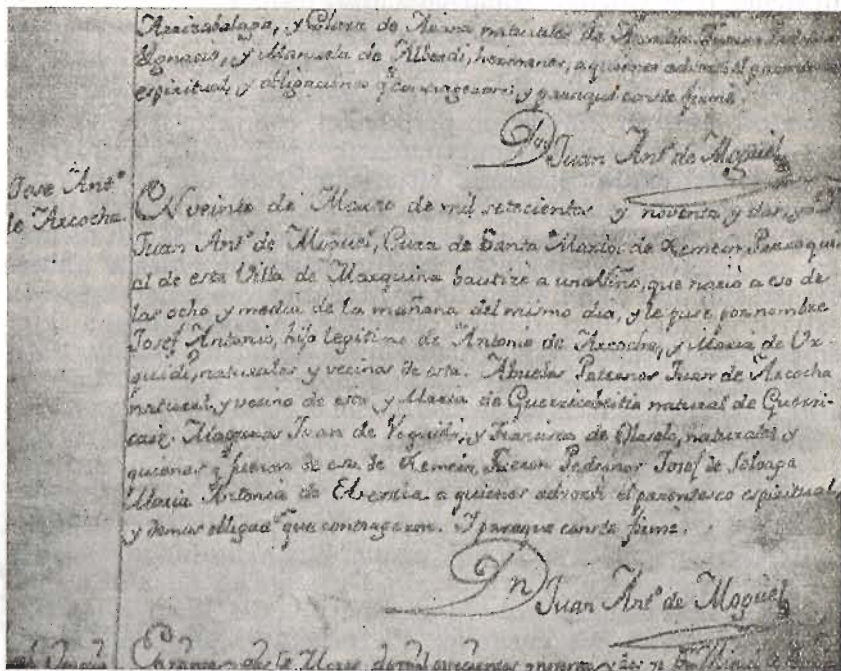 Arrizabalaga, y Theresa de naturales de
Ygnacio, y Manuela de Alberdi, hermanos, a quienes advertí el parentesco
espiritual, y obligaciones q.e contrageron; y paraque conste firmé.
D.n Juan Ant.o de Moguel
Jose Ant.o
de Axcocha
En veinte de Marzo de mil setecientos y noventa y dos, yo D.n
Juan Ant.o de Moguel, Cura de Santa Maria de Xemein Parroqui-
al de esta Villa de Marquina bautizé a un Niño, que nació a eso de
las ocho y media de la mañana del mismo dia, y le puse por nombre
Josef Antonio, hijo legitimo de Antonio de Axcocha, y Maria de Ur-
quidi, naturales y vecinos de esta. Abuelos Paternos Juan de Axcocha
natural, y vecino de esta y Maria de Guerricabeitia natural de Guerri-
caiz. Maternos Juan de Urquidi, y Francisca de naturales y
quienes q.e fueron de esta de Xemein, Fueron Padrinos Josef de Soloaga
Maria Antonia de a quienes advertí el parentesco espiritual,
y demas obligac.s que contrageron. Y paraque conste firmé.
D.n Juan Ant.o de Moguel